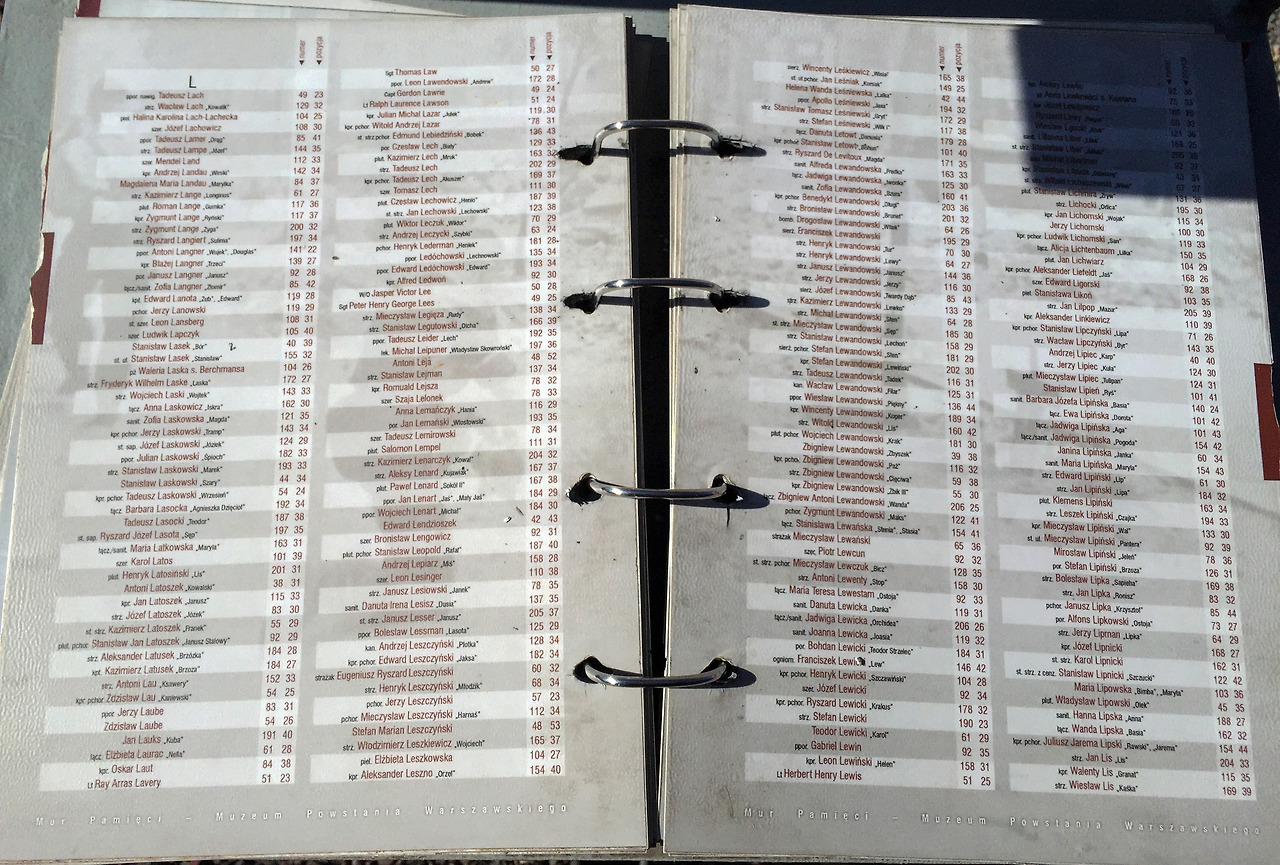 ▼numer
▼pozycja
L
ppor. nawig. Tadeusz Lach 49 23
strz. Wacław Lach „Kowalik” 129 32
plut. Halina Karolina Lach-Lachecka 104 25
szer. Józef Lachowicz 108 30
ppor. Tadeusz Lamer „Drąg” 85 41
strz. Tadeusz Lampe „Józef” 144 35
szer. Mendel Land 112 33
kpr. Andrzej Landau „Winski” 142 34
Magdalena Maria Landau „Marylka” 84 37
strz. Kazimierz Lange „Longinus” 61 27
plut. Roman Lange „Gumka” 117 36
kpr. Zygmunt Lange „Ryński” 117 37
strz. Zygmunt Lange „Zyga” 200 32
strz. Ryszard Langiert „Sulima” 197 34
ppor. Antoni Langner „Wujek”, „Douglas” 141 22
kpr. Błażej Langner „Trzeci” 139 27
por. Janusz Langner „Janusz” 92 28
łącz./sanit. Zofia Langner „Ziomir” 85 42
kpt. Edward Lanota „Zub”, „Edward” 119 28
pchor. Jerzy Lanowski 119 29
st. szer. Leon Lansberg 108 31
szer. Ludwik Lapczyk 105 40
Stanisław Lasek „Bór” 40 39
st. uł. Stanisław Lasek „Stanisław” 155 32
pż Waleria Laska s. Berchmansa 104 26
strz. Fryderyk Wilhelm Laske „Laska” 172 27
strz. Wojciech Laski „Wojtek” 143 33
łącz. Anna Laskowicz „Iskra” 162 30
sanit. Zofia Laskowska „Magda” 121 35
kpr. pchor. Jerzy Laskowski „Tramp” 143 34
st. sap. Józef Laskowski „Józiek” 124 29
ppor. Julian Laskowski „Śpioch” 182 33
strz. Stanisław Laskowski „Marek” 193 33
Stanisław Laskowski „Szary” 44 34
kpr. pchor. Tadeusz Laskowski „Wrzesień” 54 24
łącz. Barbara Lasocka „Agnieszka Dzięcioł” 192 34
Tadeusz Lasocki „Teodor” 187 38
st. sap. Ryszard Józef Lasota „Sęp” 197 35
łącz./sanit. Maria Latkowska „Maryla” 163 31
szer. Karol Latos 101 39
plut. Henryk Latosiński „Lis” 201 31
Antoni Latoszek „Kowalski” 38 31
kpr. Jan Latoszek „Janusz” 115 33
strz. Józef Latoszek „Józek” 83 30
st. strz. Kazimierz Latoszek „Franek” 55 29
plut. pchor. Stanisław Jan Latoszek „Janusz Stalowy” 92 29
strz. Aleksander Latusek „Brzózka” 184 28
kpr. Kazimierz Latusek „Brzoza” 184 27
strz. Antoni Lau „Ksawery” 152 33
kpr. pchor. Zdzisław Lau „Kaniewski” 54 25
ppor. Jerzy Laube 83 31
Zdzisław Laube 54 26
Jan Lauks „Kuba” 191 40
łącz. Elżbieta Laurac „Nella” 61 28
kpr. Oskar Laut 84 38
Lt Ray Arras Lavery 51 23
▼numer
▼pozycja
Sgt Thomas Law 50 27
ppor. Leon Lawendowski „Andrew” 172 28
Capt Gordon Lawrie 49 24
Lt Ralph Laurence Lawson 51 24
kpr. Julian Michał Lazar „Julek” 119 30
kpr. pchor. Witold Andrzej Lazar 78 31
st. strz. pchor. Edmund Lebiedziński „Bobek” 136 43
por. Czesław Lech „Biały” 129 33
plut. Kazimierz Lech „Mruk” 163 32
strz. Tadeusz Lech 202 29
kpr. pchor. Tadeusz Lech „Akuszer” 169 37
szer. Tomasz Lech 111 30
plut. Czesław Lechowicz „Henio” 187 39
st. strz. Jan Lechowski „Lechowski” 123 38
plut. Wiktor Leczuk „Wiktor” 70 29
strz. Andrzej Leczycki „Szybki” 63 24
pchor. Henryk Lederman „Heniek” 181 28
ppor. Ledóchowski „Lechnowski” 135 34
ppor. Edward Ledóchowski „Edward” 193 34
kpr. Alfred Ledwoń 92 30
W/O Jasper Victor Lee 50 28
Sgt Peter Henry George Lees 49 25
strz. Mieczysław Legięza „Rudy” 138 34
strz. Stanisław Legutowski „Cicha” 166 39
ppor. Tadeusz Leider „Lech” 192 35
lek. Michał Leipuner „Władysław Skowroński” 197 36
Antoni Leja 48 52
strz. Stanisław Lejman 137 34
kpr. Romuald Lejsza 78 32
szer. Szaja Lelonek 78 33
Anna Lemańczyk „Hania” 116 29
por. Jan Lemański „Wiosłowski” 193 35
szer. Tadeusz Lemirowski 78 34
plut. Salomon Lempel 111 31
strz. Kazimierz Lenarczyk „Kowal” 204 32
strz. Aleksy Lenard „Kujawiak” 167 37
plut. Paweł Lenard „Sokół II” 167 38
ppor. Jan Lenart „Jaś”, „Mały Jaś” 184 29
ppor. Wojciech Lenart „Michał” 184 30
Edward Lendzioszek 42 43
szer. Bronisław Lengowicz 92 31
plut. pchor. Stanisław Leopold „Rafał” 187 40
Andrzej Lepiarz „Miś” 158 28
szer. Leon Lesinger 110 38
strz. Janusz Lesiowski „Janek” 78 35
sanit. Danuta Irena Lesisz „Dusia” 137 35
st. strz. Janusz Lesser „Janusz” 205 37
ppor. Bolesław Lessman „Lasota” 125 29
kan. Andrzej Leszczyński „Plotka” 128 34
kpr. pchor. Edward Leszczyński „Jaksa” 182 34
strażak Eugeniusz Ryszard Leszczyński 60 32
strz. Henryk Leszczyński „Młodzik” 68 34
pchor. Jerzy Leszczyński 57 23
pchor. Mieczysław Leszczyński „Harnaś” 112 34
Stefan Marian Leszczyński 48 53
strz. Włodzimierz Leszkiewicz „Wojciech” 165 37
piel. Elżbieta Leszkowska 104 27
kpr. Aleksander Leszno „Orzeł” 154 40
Mur Pamięci – Muzeum Powstania Warszawskiego
▼numer
▼pozycja
sierż. Wincenty Leśkiewicz „Wisia” 165 38
st. uł. pchor. Jan Leśniak „Korsak” 149 25
Helena Wanda Leśniewska „Lalka” 42 44
ppor. Apollo Leśniewski „Jaxa” 194 32
strz. Stanisław Tomasz Leśniewski „Gryf” 172 29
strz. Stefan Leśniewski „Wilk I” 117 38
łącz. Danuta Letowt „Danusia” 179 28
kpr. pchor. Stanisław Letowt „Bohun” 101 40
strz. Ryszard De Levitoux „Magda” 171 35
sanit. Alfreda Lewandowska „Fredka” 163 33
łącz. Jadwiga Lewandowska „Iwonka” 125 30
sanit. Zofia Lewandowska „Bzowa” 160 41
kpr. pchor. Benedykt Lewandowski „Długi” 203 36
strz. Bronisław Lewandowski „Brunet” 201 32
bomb. Drogosław Lewandowski „Witek” 64 26
szer. Franciszek Lewandowski 195 29
strz. Henryk Lewandowski „Tur” 70 30
strz. Henryk Lewandowski „Lewy” 64 27
strz. Janusz Lewandowski „Janusz” 144 36
strz. Jerzy Lewandowski „Jerzy” 116 30
szer. Józef Lewandowski „Twardy Dąb” 85 43
strz. Kazimierz Lewandowski „Lewko” 133 29
strz. Michał Lewandowski 64 28
st. strz. Mieczysław Lewandowski „Sęp” 185 30
strz. Stanisław Lewandowski „Lechoń” 158 29
sierż. pchor. Stefan Lewandowski „Sten” 181 29
kpr. Stefan Lewandowski „Lewiński” 202 30
strz. Tadeusz Lewandowski „Tadek” 116 31
kan. Wacław Lewandowski „Filar” 125 31
ppor. Wiesław Lewandowski „Piękny” 136 44
kpr. Wincenty Lewandowski „Koper” 189 34
strz. Witold Lewandowski „Lis” 160 42
plut. pchor. Wojciech Lewandowski „Krak” 181 30
Zbigniew Lewandowski „Zbyszek” 39 38
kpr. pchor. Zbigniew Lewandowski „Paź” 116 32
strz. Zbigniew Lewandowski „Cięciwa” 59 38
kpr. Zbigniew Lewandowski „Zbik III” 55 30
łącz. Zbigniew Antoni Lewandowski „Wanda” 206 25
pchor. Zygmunt Lewandowski „Maks” 122 41
łącz. Stanisława Lewańska „Stenia”, „Stasia” 154 41
strażak Mieczysław Lewański 65 36
szer. Piotr Lewcun 92 32
st. strz. pchor. Mieczysław Lewczuk „Bicz” 128 35
strz. Antoni Lewenty „Stop” 158 30
łącz. Maria Teresa Lewestam „Ostoja” 92 33
sanit. Danuta Lewicka „Danka” 119 31
łącz./sanit. Jadwiga Lewicka „Orchidea” 206 26
sanit. Joanna Lewicka „Joasia” 119 32
por. Bohdan Lewicki „Teodor Strzelec” 184 31
ogniom. Franciszek Lewicki „Lew” 146 42
kpr. pchor. Henryk Lewicki „Szczawiński” 104 28
szer. Józef Lewicki 92 34
kpr. pchor. Ryszard Lewicki „Krakus” 178 32
strz. Stefan Lewicki 190 23
Teodor Lewicki „Karol” 61 29
ppor. Gabriel Lewin 92 35
kpr. Leon Lewiński „Helen” 158 31
Lt Herbert Henry Lewis 51 25
Stanisław Lichticki „Zryw” 131 36
strz. Lichocki „Orlica” 195 30
kpr. Jan Lichomski „Wojak” 115 34
Jerzy Lichomski 100 30
kpr. pchor. Ludwik Lichomski „San” 119 33
łącz. Alicja Lichtenbaum „Lilka” 150 35
plut. Jan Lichwiarz 104 29
kpr. pchor. Aleksander Liefeldt „Jaś” 168 26
szer. Edward Ligorski 92 38
piel. Stanisława Likoń 103 35
strz. Jan Lilpop „Mazur” 205 39
kpr. Aleksander Linkiewicz 110 39
kpr. pchor. Stanisław Lipczyński „Lipa” 71 26
strz. Wacław Lipczyński „Byt” 143 35
Andrzej Lipiec „Karp” 40 40
strz. Jerzy Lipiec „Kula” 124 30
plut. Mieczysław Lipiec „Tulipan” 124 31
Stanisław Lipień „Rys” 101 41
sanit. Barbara Józefa Lipińska „Basia” 140 24
łącz. Ewa Lipińska „Dorota” 101 42
łącz./sanit. Jadwiga Lipińska „Aga” 101 43
łącz./sanit. Jadwiga Lipińska „Pogoda” 154 42
Janina Lipińska „Janka” 60 34
sanit. Maria Lipińska „Maryla” 154 43
strz. Edward Lipiński „Lip” 61 30
strz. Jan Lipiński „Lipa” 184 32
plut. Klemens Lipiński 163 34
strz. Leszek Lipiński „Czajka” 194 33
kpr. Mieczysław Lipiński „Wal” 133 30
st. strz. Mieczysław Lipiński „Pantera” 92 39
Mirosław Lipiński „Jeleń” 78 36
por. Stefan Lipiński „Brzoza” 126 31
strz. Bolesław Lipka „Sapieha” 169 38
strz. Jan Lipka „Ronisz” 83 32
pchor. Janusz Lipka „Krzysztof” 85 44
por. Alfons Lipkowski „Ostoja” 73 27
strz. Jerzy Lipman „Lipka” 64 29
kpr. Józef Lipnicki 168 27
st. strz. Karol Lipnicki 162 31
st. strz. z cenz. Stanisław Lipnicki „Szczucki” 122 42
Maria Lipowska „Bimba”, „Maryla” 103 36
plut. Władysław Lipowski „Olek” 45 35
sanit. Hanna Lipska „Anna” 188 27
łącz. Wanda Lipska „Basia” 162 32
kpr. pchor. Juliusz Jarema Lipski „Rawski”, „Jarema” 154 44
strz. Jan Lis „Lis” 204 33
kpr. Walenty Lis „Granat” 115 35
strz. Wiesław Lis „Kaśka” 169 39
Mur Pamięci – Muzeum Powstania Warszawskiego